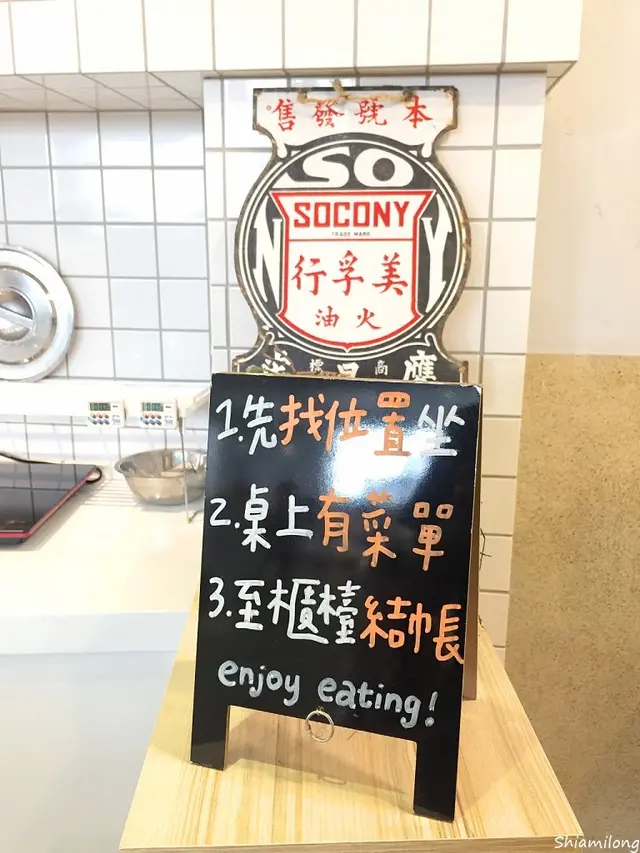 本號發售
SO
N Y
SOCONY
TRADE MARK
美孚行
火油
鷹
商標
1.先找位置坐
2.桌上有菜單
3.至櫃檯結帳
enjoy eating!
Shiamilong